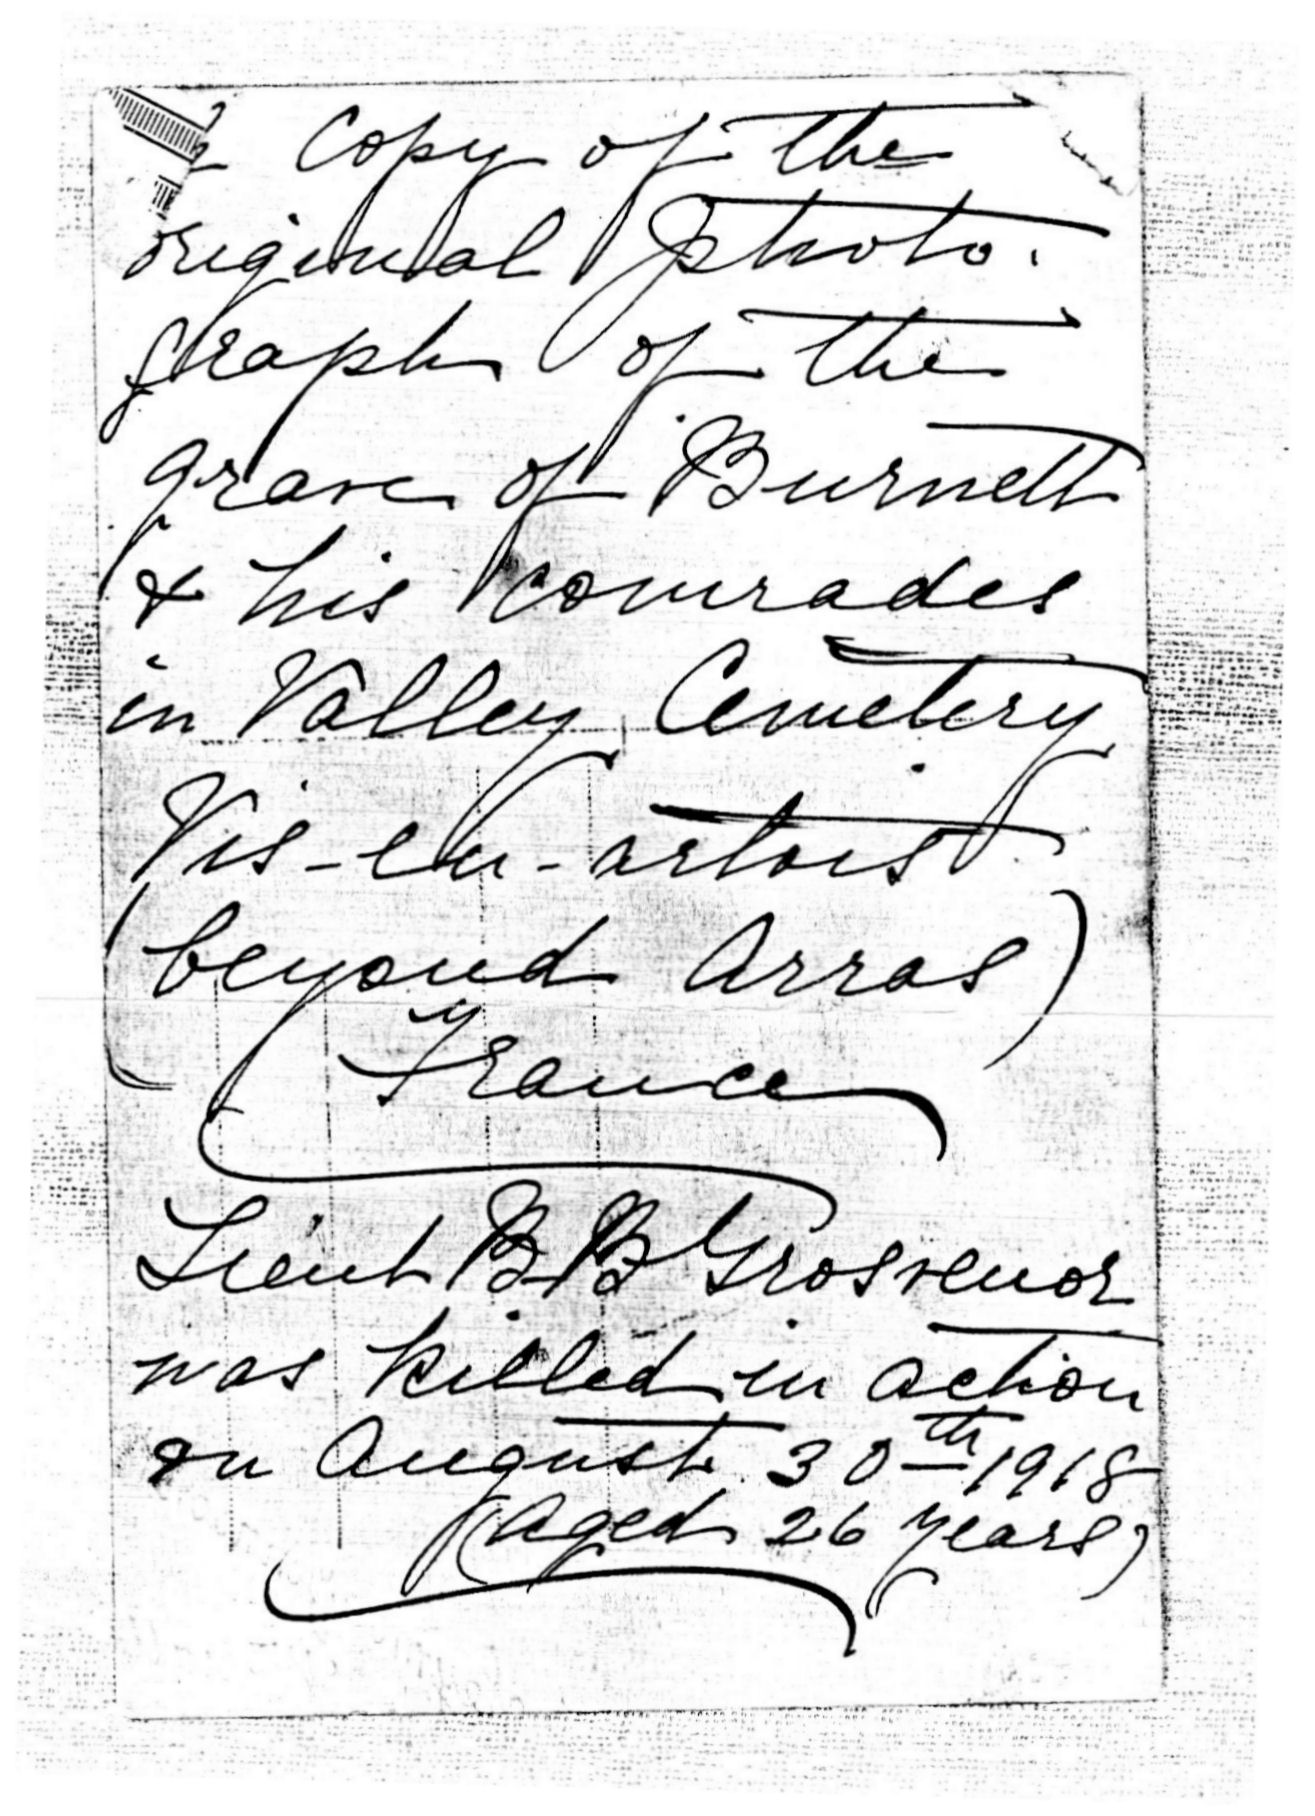 Copy of the
original photo-
graph of the
grave of Burnett
& his comrades
in Valley Cemetery
Vis-en-artois
(beyond Arras)
France
Lieut B B Grosvenor
was killed in action
on August 30th 1918
(aged 26 years)